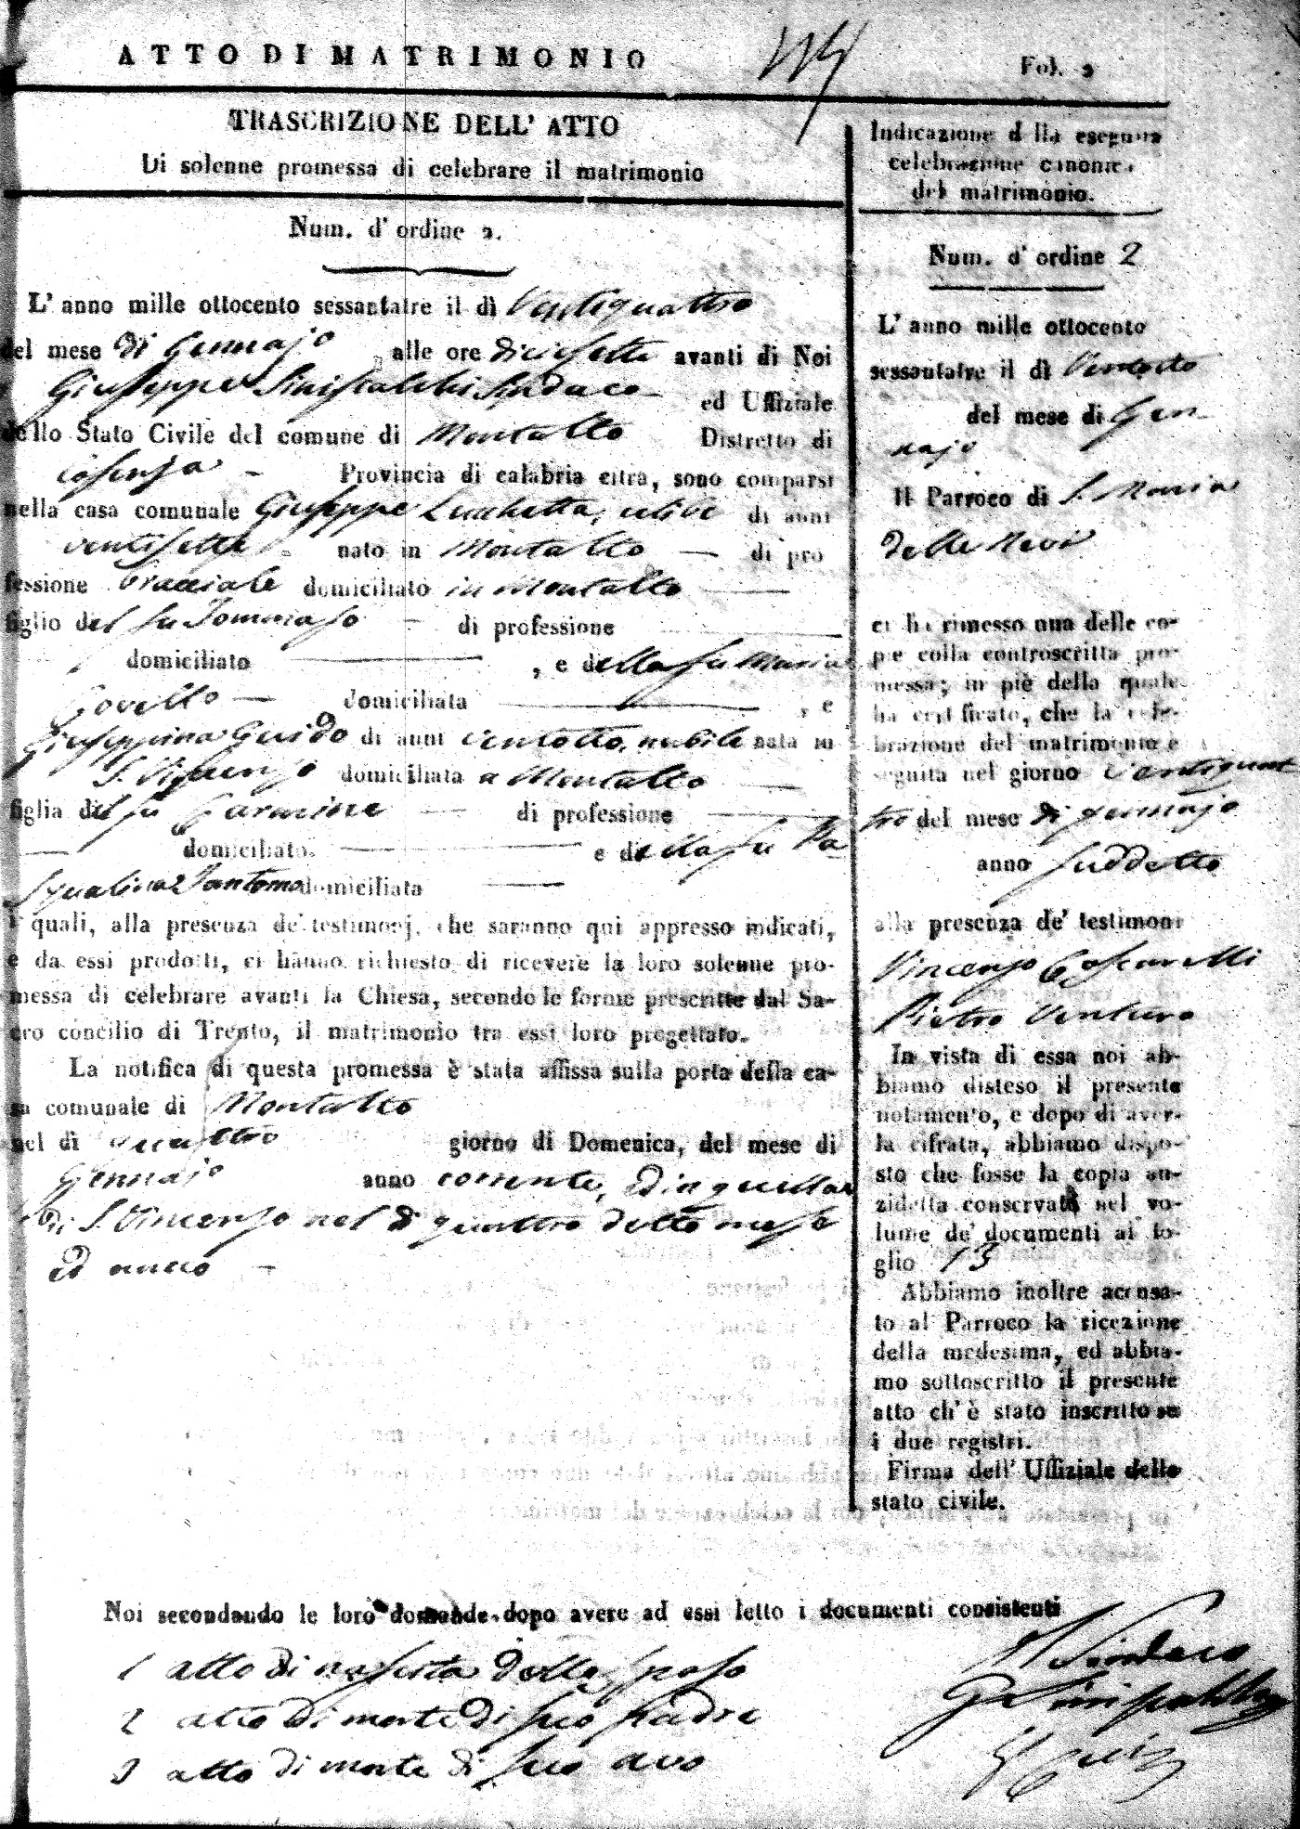 ATTO DI MATRIMONIO
Fol. 2
TRASCRIZIONE DELL' ATTO
Di solenne promessa di celebrare il matrimonio
Num. d' ordine 2.
L' anno mille ottocento sessantatre il dì Ventiquattro
del mese di Gennajo alle ore diciesette avanti di Noi
Giuseppe Siniscalchi Sindaco ed Uffiziale
dello Stato Civile del comune di Montalto Distretto di
Cosenza - Provincia di calabria citra, sono comparsi
nella casa comunale Giuseppe Lucchetta, celibe di anni
ventisette nato in Montalto — di pro
fessione Bracciale domiciliato in Montalto
figlio del fu Tommaso - di professione
domiciliato , e della fu Maria
Covello — domiciliata , e
Giuseppina Guido di anni ventotto, nubile nata in
S. Vincenzo domiciliata a Montalto
figlia del fu Carmine — di professione
domiciliato. e della fu Pa
squalina Santomo domiciliata
i quali, alla presenza de' testimonj, che saranno qui appresso indicati,
e da essi prodotti, ci hanno richiesto di ricevere la loro solenne pro-
messa di celebrare avanti la Chiesa, secondo le forme prescritte dal Sa-
cro concilio di Trento, il matrimonio tra essi loro progettato.
La notifica di questa promessa è stata affissa sulla porta della ca-
sa comunale di Montalto
nel dì quattro giorno di Domenica, del mese di
Gennajo anno corrente, ed in quella
di S. Vincenzo nel dì quattro detto mese
ed anno -
Indicazione della eseguita
celebrazione canonica
del matrimonio.
Num. d' ordine 2
L' anno mille ottocento
sessantatre il dì Ventotto
del mese di Gen
najo
Il Parroco di S. Maria
delle Nevi
ci ha rimesso una delle co-
pie colla controscritta pro-
messa; in piè della quale
ha certificato, che la cele-
brazione del matrimonio è
seguita nel giorno ventiquat
tro del mese di gennajo
anno suddetto
alla presenza de' testimoni
Vincenzo Coscarelli
Pietro Venturo
In vista di essa noi ab-
biamo disteso il presente
notamento, e dopo di aver-
la cifrata, abbiamo dispo-
sto che fosse la copia an-
zidetta conservata nel vo-
lume de' documenti al fo-
glio 13
Abbiamo inoltre accusa-
to al Parroco la ricezione
della medesima, ed abbia-
mo sottoscritto il presente
atto ch' è stato inscritto su
i due registri.
Firma dell' Uffiziale dello
stato civile.
Noi secondando le loro domande dopo avere ad essi letto i documenti consistenti
1 atto di nascita dello sposo
2 atto di morte di suo padre
3 atto di morte di suo avo
Il Sindaco
G. Siniscalchi